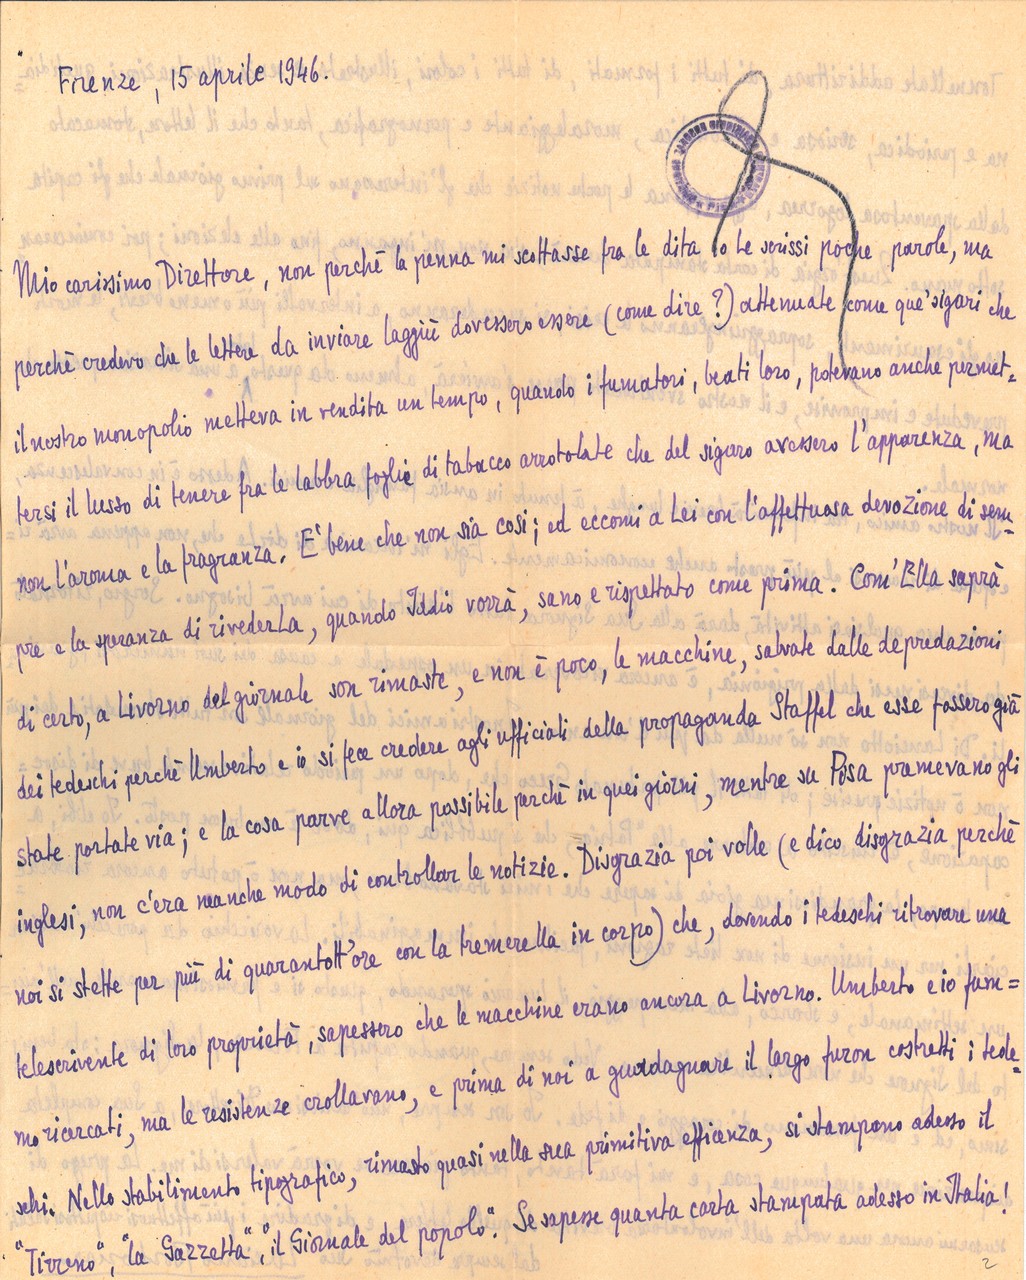 Firenze, 15 aprile 1946.
Mio carissimo Direttore, non perchè la penna mi scottasse fra le dita io Le scrissi poche parole, ma
perchè credevo che le lettere da inviare laggiù dovessero essere (come dire?) attenuate come que' sigari che
il nostro monopolio metteva in vendita un tempo, quando i fumatori, beati loro, potevano anche permet=
tersi il lusso di tenere fra le labbra foglie di tabacco arrotolate che del sigaro avessero l'apparenza, ma
non l'aroma e la fragranza. E' bene che non sia così; ed eccomi a Lei con l'affettuosa devozione di sem=
pre e la speranza di rivederLa, quando Iddio vorrà, sano e rispettato come prima. Com'Ella saprà
di certo, a Livorno del giornale son rimaste, e non è poco, le macchine, salvate dalle depredazioni
dei tedeschi perchè Umberto e io si fece credere agli ufficiali della propaganda Staffel che esse fossero già
state portate via; e la cosa parve allora possibile perchè in quei giorni, mentre su Pisa premevano gli
inglesi, non c'era neanche modo di controllar le notizie. Disgrazia poi volle (e dico disgrazia perchè
noi si stette per più di quarantott'ore con la tremerella in corpo) che, dovendo i tedeschi ritrovare una
telescrivente di loro proprietà, sapessero che le macchine erano ancora a Livorno. Umberto e io fum=
mo ricercati, ma le resistenze crollavano, e prima di noi a guadagnare il largo furon costretti i tede=
schi. Nello stabilimento tipografico, rimasto quasi nella sua primitiva efficenza, si stampano adesso il
"Tirreno", "la Gazzetta", "il Giornale del popolo". Se sapesse quanta carta stampata adesso in Italia!
2